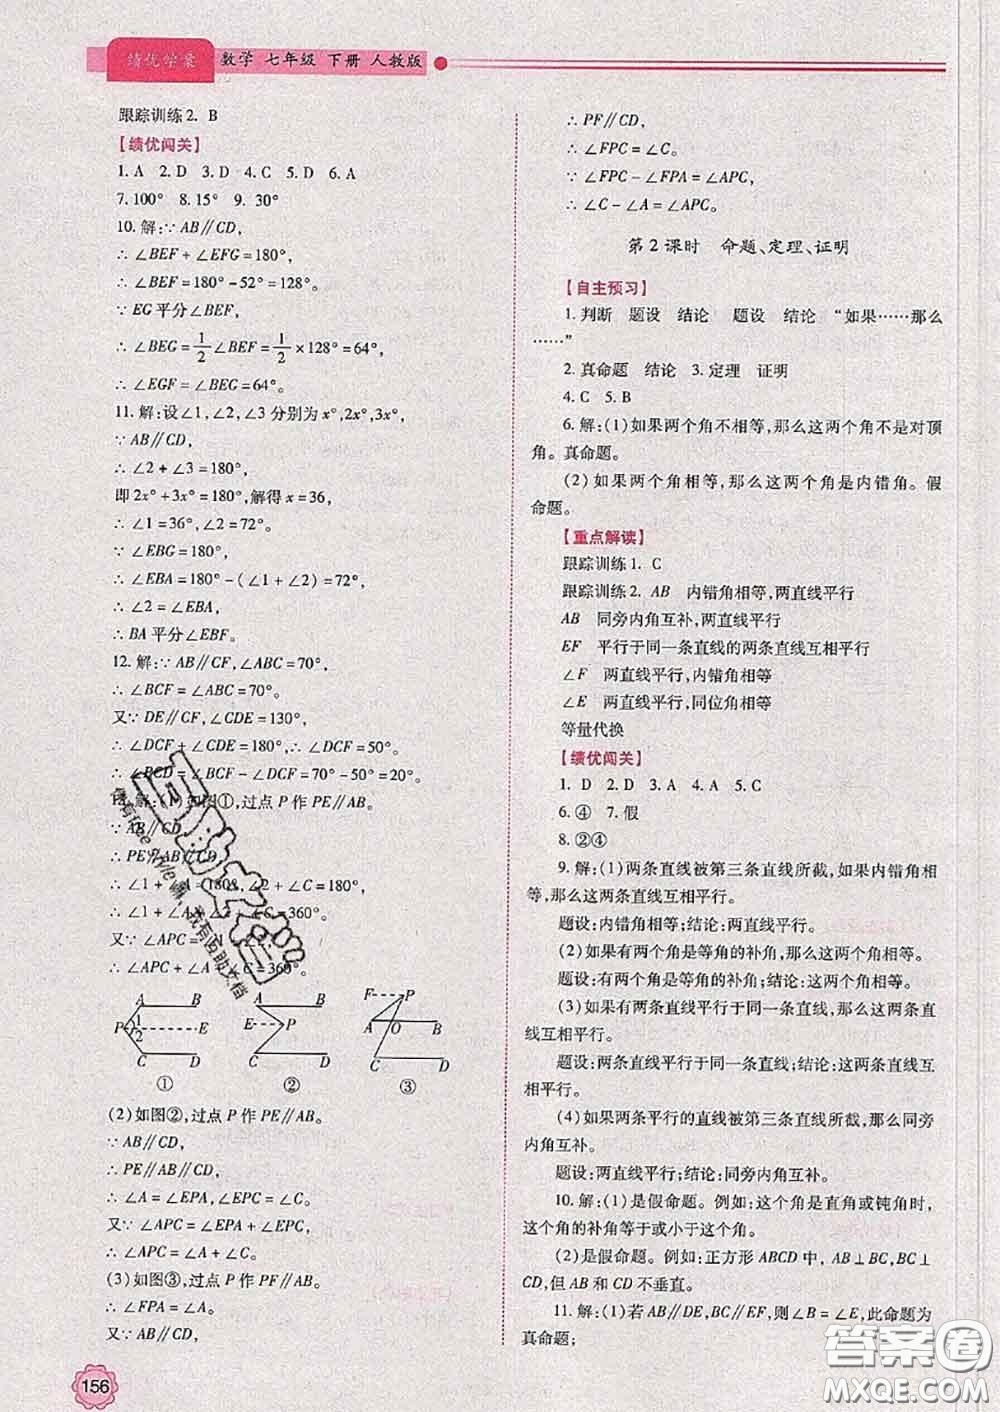 绩优学案 数学 七年级 下册 人教版
跟踪训练2. B
【绩优闯关】
1. A 2. D 3. D 4. C 5. D 6. A
7. 100° 8. 15° 9. 30°
10. 解:∵AB∥CD,
∴∠BEF+∠EFG=180°,
∴∠BEF=180°-52°=128°。
∵EG平分∠BEF,
∴∠BEG=1/2∠BEF=1/2×128°=64°,
∴∠EGF=∠BEG=64°。
11. 解:设∠1,∠2,∠3分别为x°,2x°,3x°,
∵AB∥CD,
∴∠2+∠3=180°,
即2x°+3x°=180°,解得x=36,
∴∠1=36°,∠2=72°。
∵∠EBG=180°,
∴∠EBA=180°-(∠1+∠2)=72°,
∴∠2=∠EBA,
∴BA平分∠EBF。
12. 解:∵AB∥CF,∠ABC=70°,
∴∠BCF=∠ABC=70°。
又∵DE∥CF,∠CDE=130°,
∴∠DCF+∠CDE=180°,∴∠DCF=50°。
∴∠BCD=∠BCF-∠DCF=70°-50°=20°。
13. 解:(1)如图①,过点P作PE∥AB。
∵AB∥CD,
∴PE∥AB∥CD,
∴∠1+∠A=180°,∠2+∠C=180°,
∴∠1+∠A+∠2+∠C=360°。
又∵∠APC=∠1+∠2,
∴∠APC+∠A+∠C=360°。
A B P 1 2 E C D ①
A B E P C D ②
F P A O B C D ③
(2)如图②,过点P作PE∥AB。
∵AB∥CD,
∴PE∥AB∥CD,
∴∠A=∠EPA,∠EPC=∠C。
又∵∠APC=∠EPA+∠EPC,
∴∠APC=∠A+∠C。
(3)如图③,过点P作PF∥AB。
∴∠FPA=∠A。
又∵AB∥CD,
156
∴PF∥CD,
∴∠FPC=∠C。
∵∠FPC-∠FPA=∠APC,
∴∠C-∠A=∠APC。
第2课时 命题、定理、证明
【自主预习】
1. 判断 题设 结论 题设 结论 “如果……那么
……”
2. 真命题 结论 3. 定理 证明
4. C 5. B
6. 解:(1)如果两个角不相等,那么这两个角不是对顶
角。真命题。
(2)如果两个角相等,那么这两个角是内错角。假
命题。
【重点解读】
跟踪训练1. C
跟踪训练2. AB 内错角相等,两直线平行
AB 同旁内角互补,两直线平行
EF 平行于同一条直线的两条直线互相平行
∠F 两直线平行,内错角相等
∠E 两直线平行,同位角相等
等量代换
【绩优闯关】
1. D 2. D 3. A 4. A 5. C
6. ④ 7. 假
8. ②④
9. 解:(1)两条直线被第三条直线所截,如果内错角相
等,那么这两条直线互相平行。
题设:内错角相等;结论:两直线平行。
(2)如果有两个角是等角的补角,那么这两个角相等。
题设:有两个角是等角的补角;结论:这两个角相等。
(3)如果有两条直线平行于同一条直线,那么这两条
直线互相平行。
题设:两条直线平行于同一条直线;结论:这两条直线互
相平行。
(4)如果两条平行的直线被第三条直线所截,那么同旁
内角互补。
题设:两直线平行;结论:同旁内角互补。
10. 解:(1)是假命题。例如:这个角是直角或钝角时,
这个角的补角等于或小于这个角。
(2)是假命题。例如:正方形ABCD中,AB⊥BC,BC⊥
CD,但AB和CD不垂直。
11. 解:(1)若AB∥DE,BC∥EF,则∠B=∠E,此命题为
真命题;
答案圈
MXQE.COM